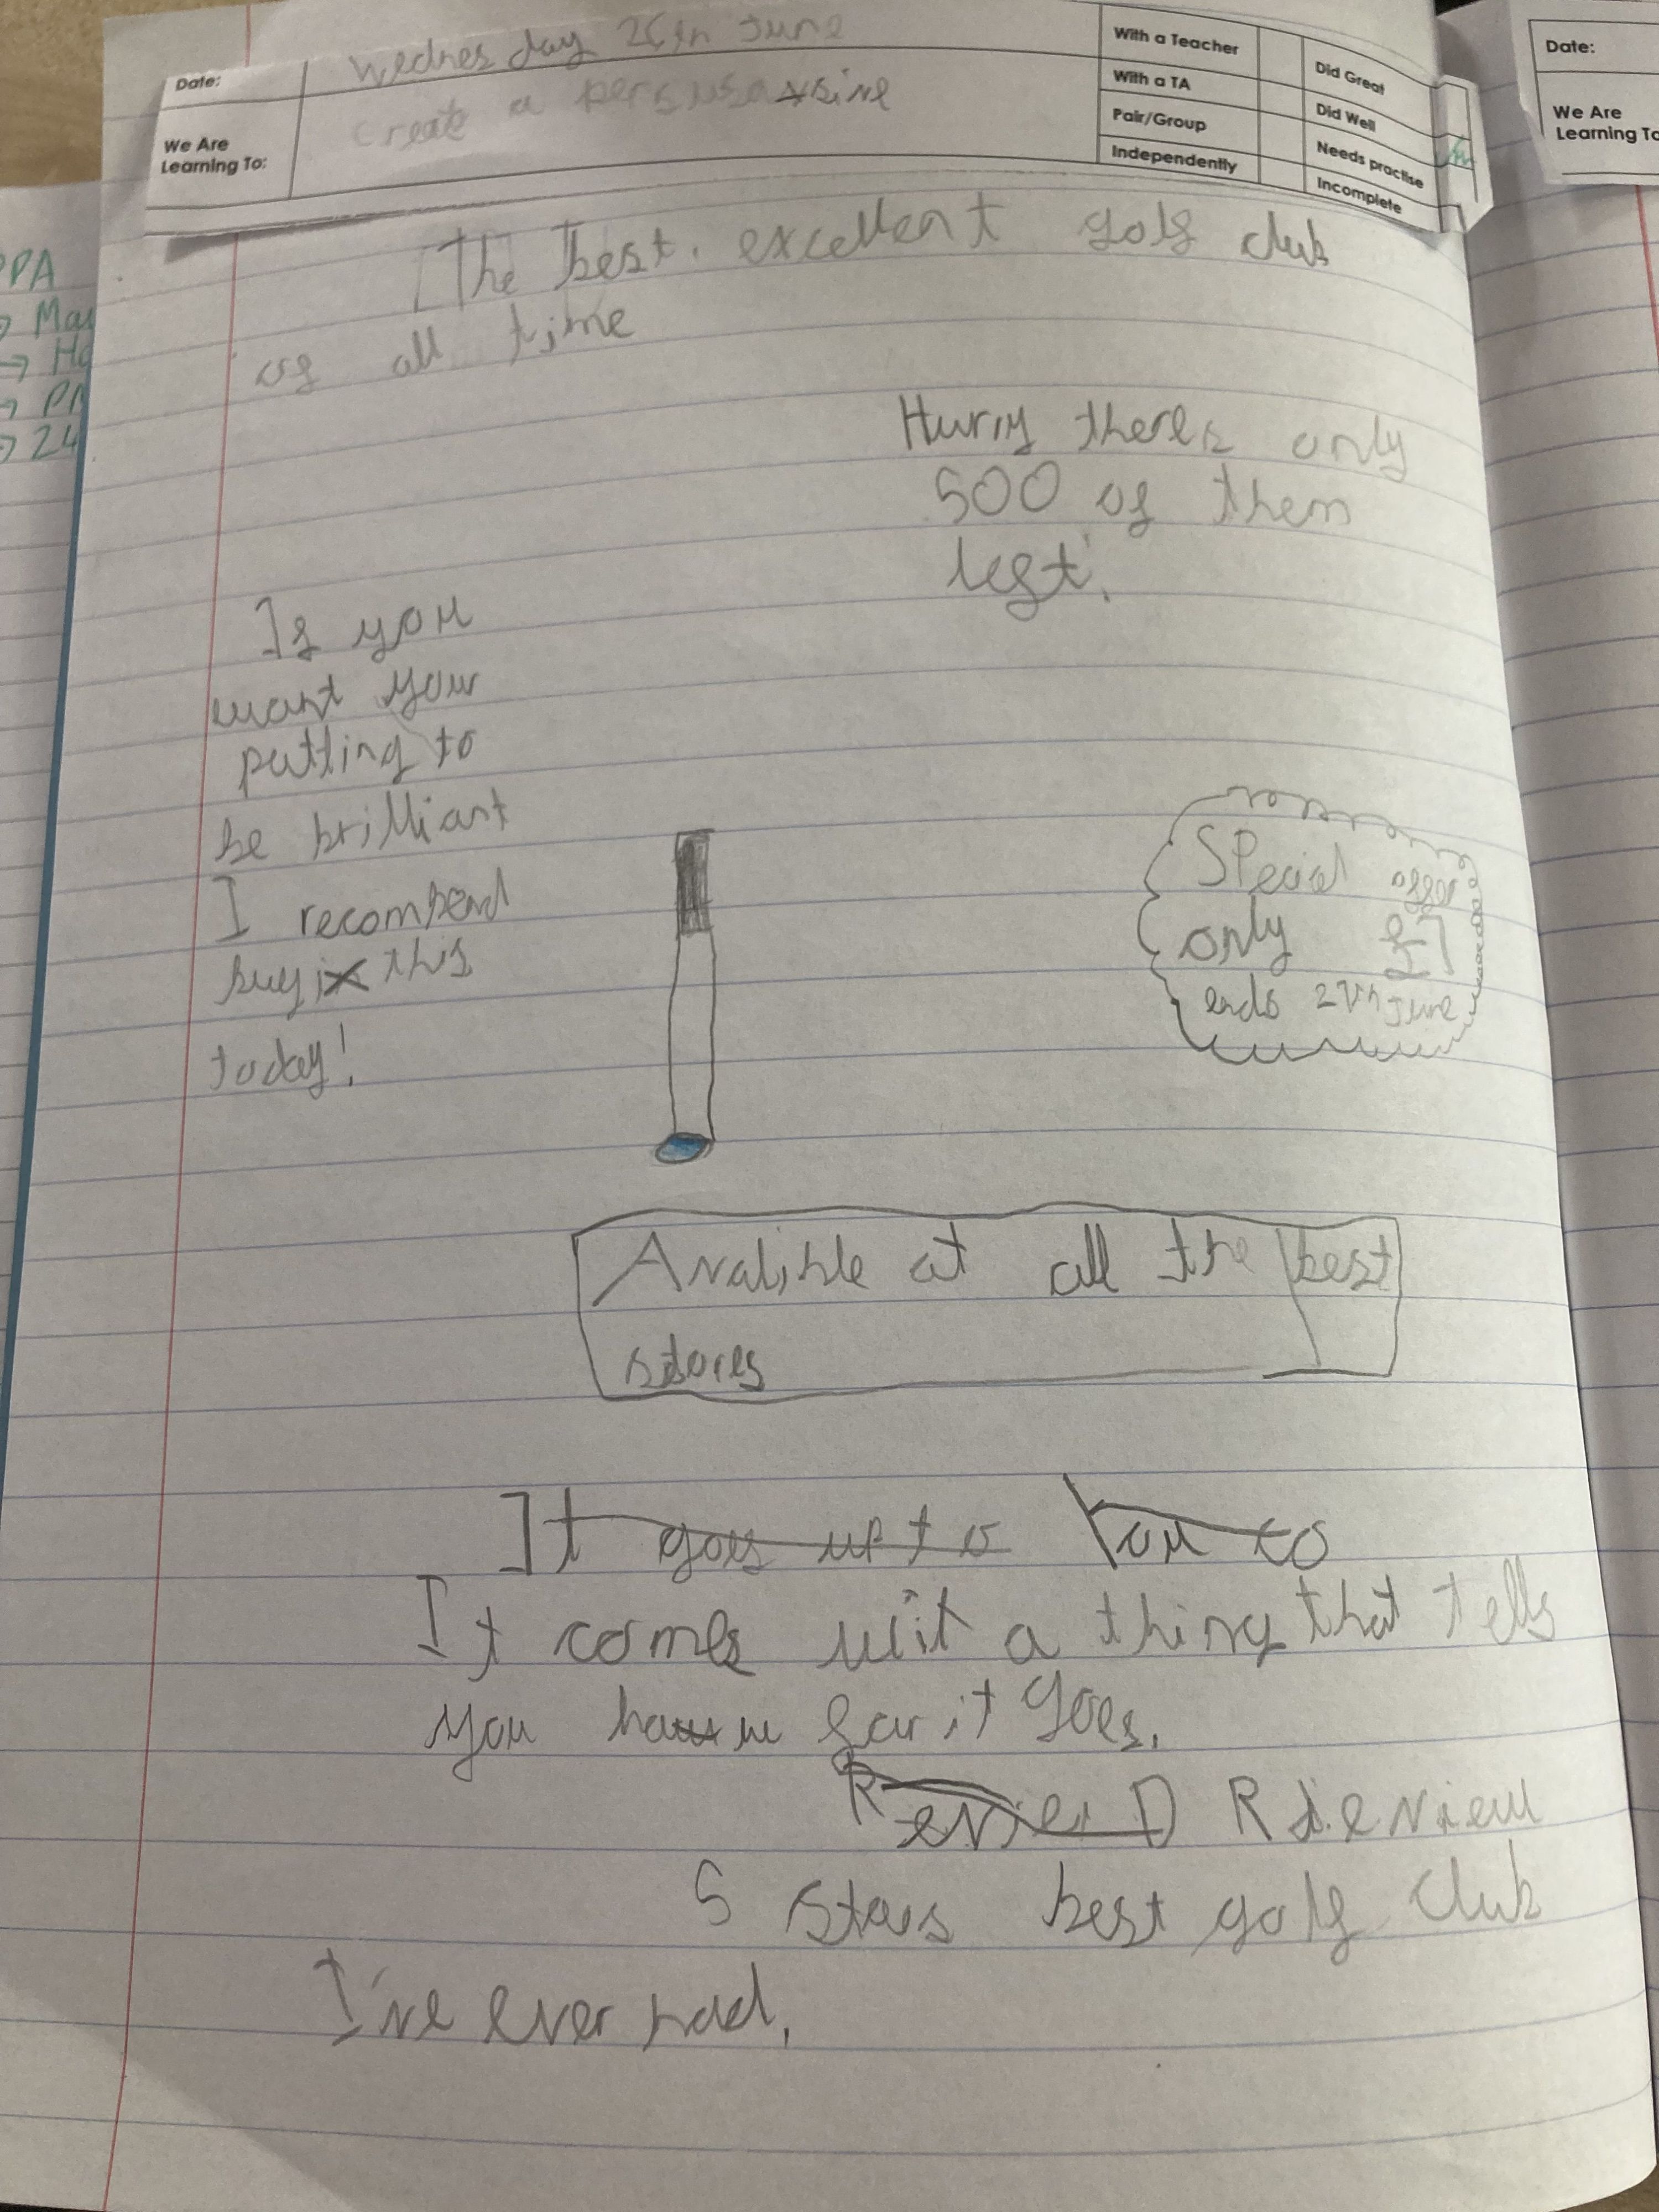 Date: Wednesday 26th June
We Are
Learning To: Create a
With a Teacher
With a TA
Pair/Group
Independently
Did Great
Did Well
Needs practise
Incomplete
Date:
We Are
Learning To
PPA
→ Ma
→ Ha
→ 24
The best. excellent golf club
of all time
Hurry theres only
500 of them
left.
If you
want your
putting to
be brilliant
I recombend
buyi this
today!
SPecial offer
only £7
ends 27th June
Avalible at all the best
stores
It goes up to You co
It comes wit a thing that tells
you how far it goes.
Review
5 stars best golf club
I've ever had.